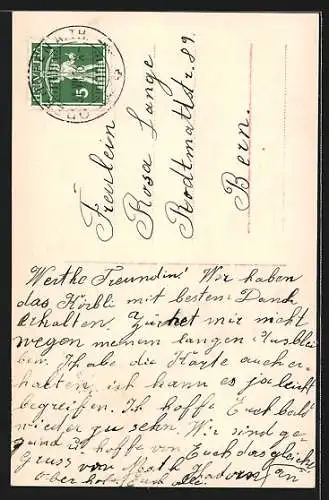 HELVETIA
5
Fräulein
Rosa Lange
Rodtmattstr. 89.
Bern.
Werthe Freundin! Wir haben
das Körbli mit bestem Dank
erhalten. Zürnet mir nicht
wegen meinem langen Ausblei
ben. Ich habe die Karte auch er-
halten, ich kann es ja leicht
begreifen. Ich hoffe Euch bald
wieder zu sehen. Wir sind ge-
sund & hoffe von Euch das gleiche
Gruss von